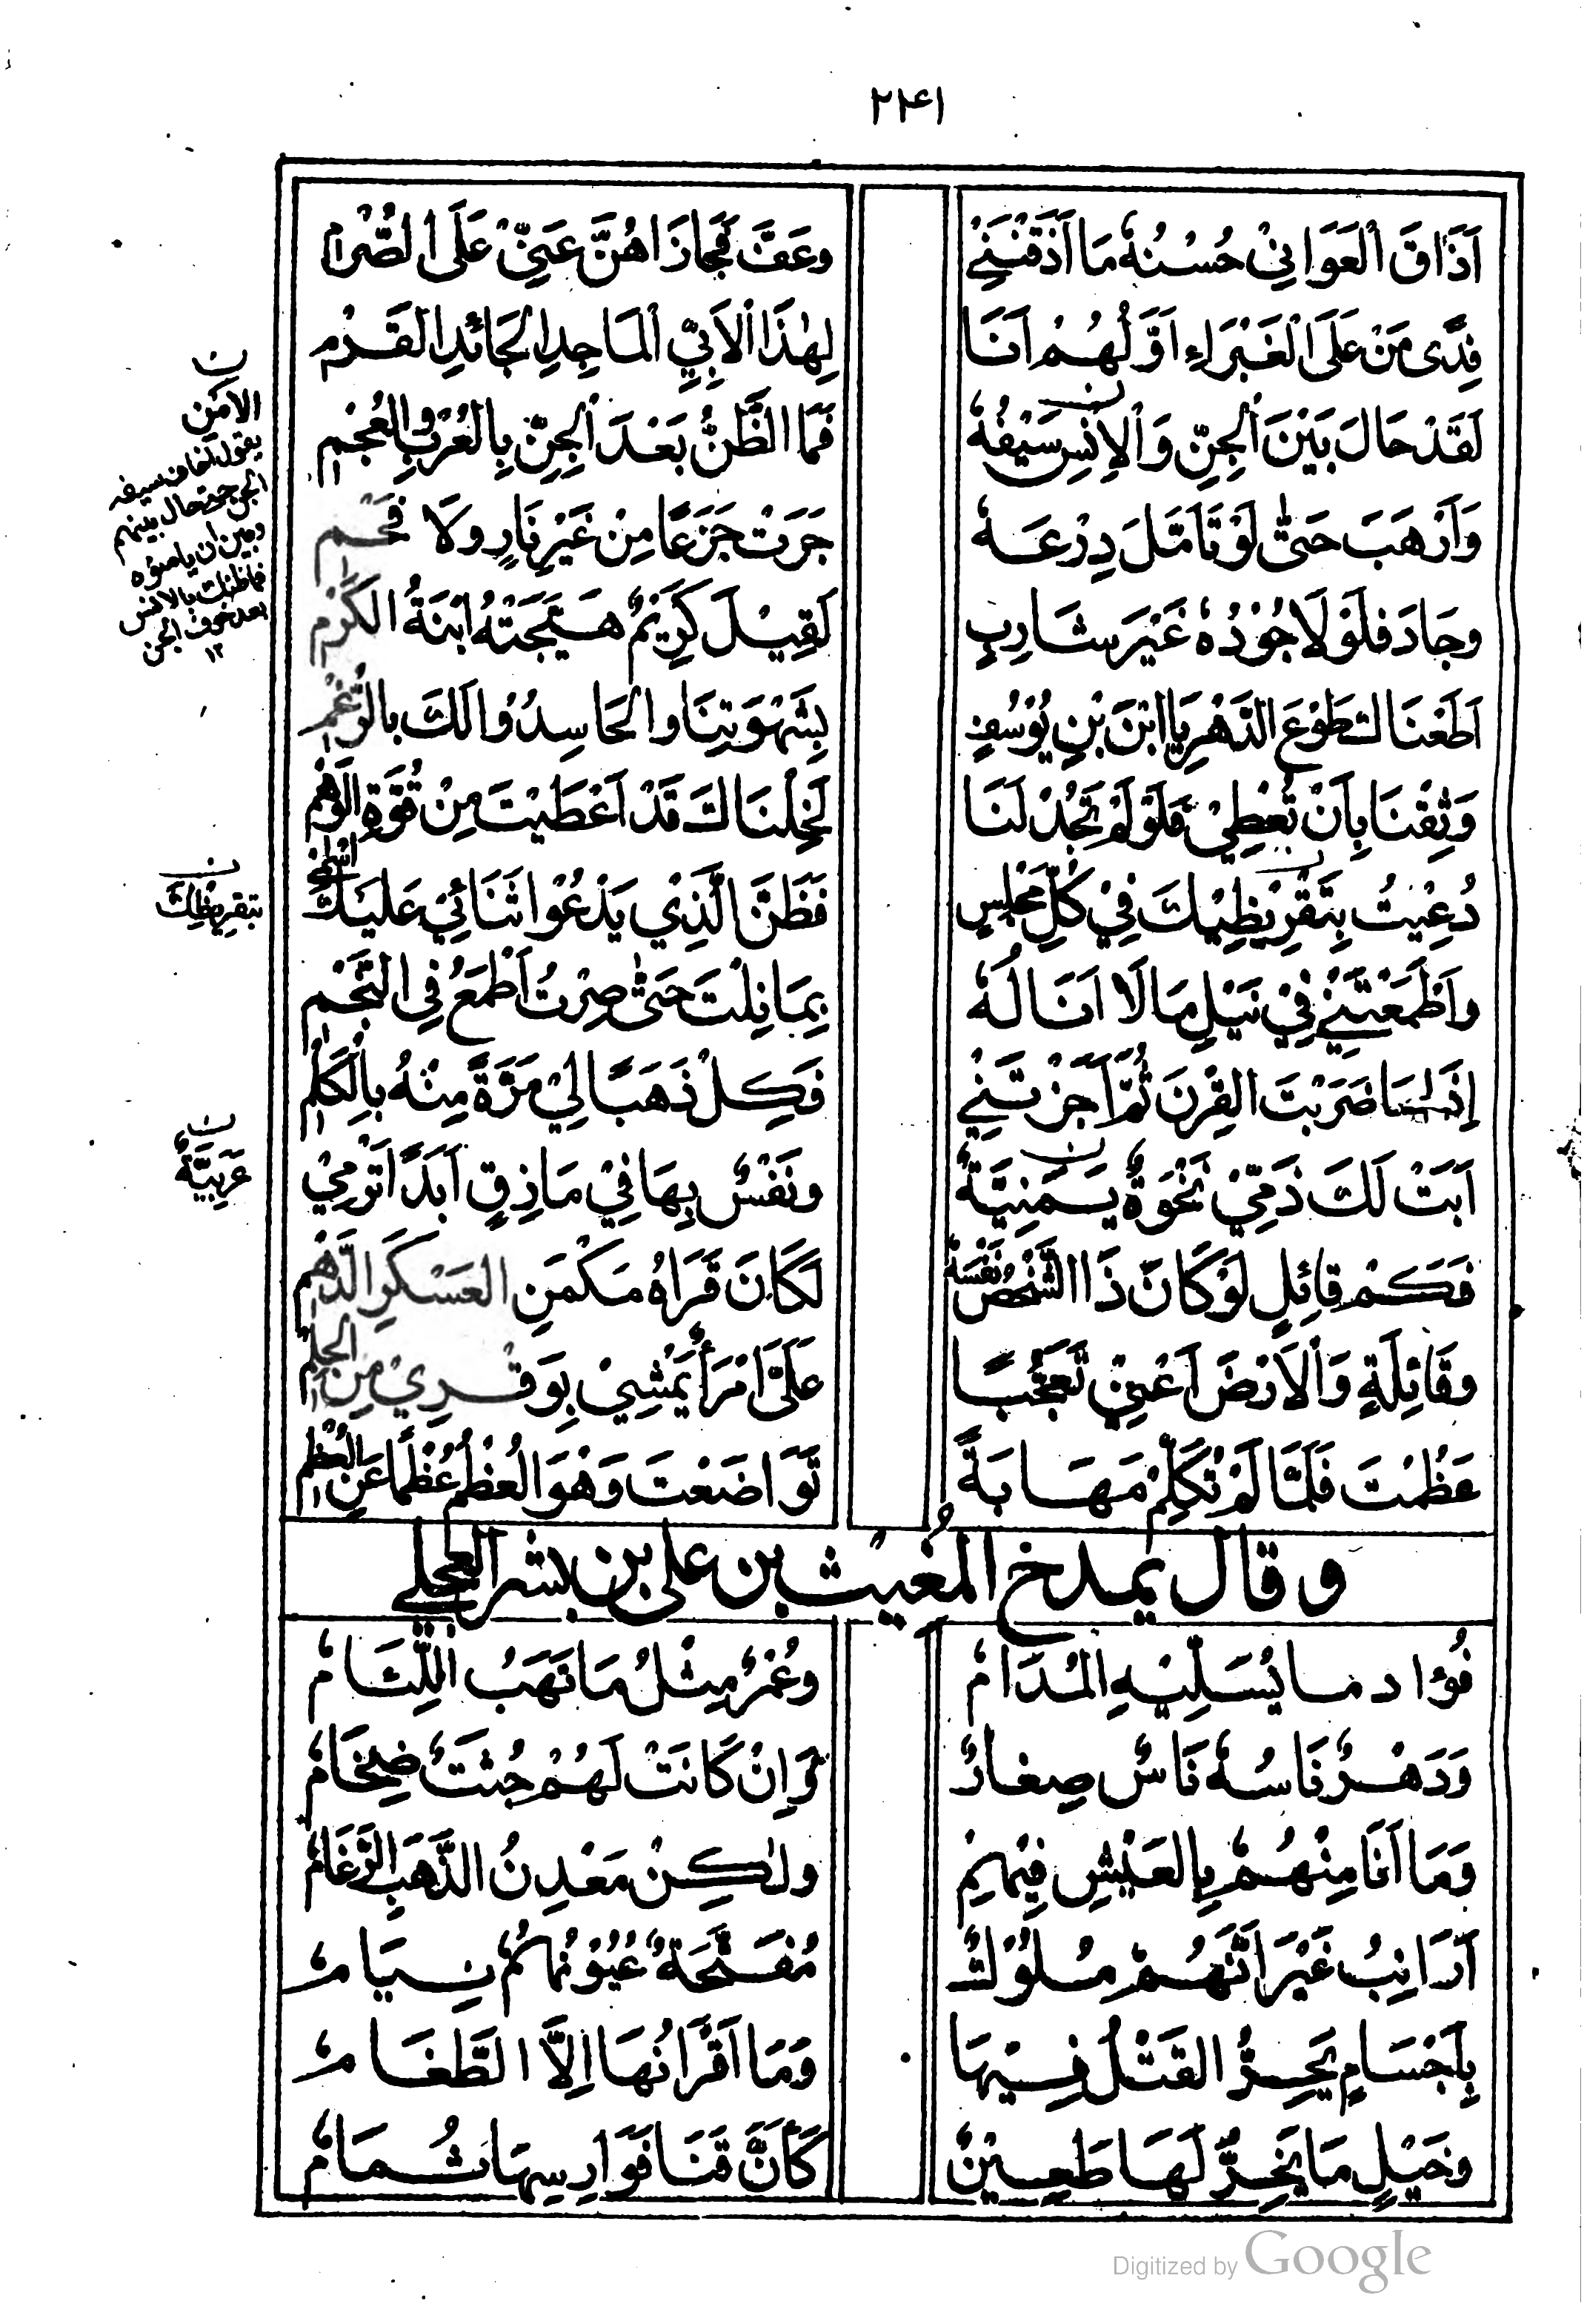 ٢٤١
اَذَاقَ الْغَوَانِيْ حُسْنُهٗ مَا اَذَقْنَنِيْ وعَفَّ فَجَازَاهُنَّ عَنِّيْ عَلَى الصُّرْمِ
فِدًى مَنْ عَلَى الْغَبْرَاءِ اَوَّلُهُمْ اَنَا لِهٰذَا الْاَبِيِّ الْمَاجِدِ الْجَائِدِ الْقَرْمِ
لَقَدْ حَالَ بَيْنَ الْجِنِّ وَالْاِنْسِ سَيْفُهٗ فَمَا الظَّنُّ بَعْدَ الْجِنِّ بِالْعُرْبِ والْعُجْمِ
وَاَرْهَبَ حَتّٰى لَوْ تَاَمَّلَ دِرْعَهٗ جَرَتْ جَزَعًا مِنْ غَيْرِ نَارٍ وَلَا فَحْمِ
وجَادَ فلَوْلَا جُوْدُهٗ غَيْرَ شَارِبٍ لَقِيْلَ كَرِيْمٌ هَيَّجَتْهُ ابْنَةُ الكَرْمِ
اَطَعْنَاكَ طَوْعَ الدَّهْرِ يَا ابْنَ بْنِ يُوْسُفٍ بِشَهْوَتِنَا والْحَاسِدُوْا لَكَ بالرَّغْمِ
وَثِقْنَا بِاَنْ تُعْطِيْ فَلَوْ لَمْ تَجُدْ لَنَا لَخِلْنَاكَ قَدْ اَعْطَيْتَ مِنْ قُوَّةِ الوَهْمِ
دُعِيْتُ بِتَقْرِيْظِيْكَ فِيْ كُلِّ مَجْلِسٍ فَظَنَّ الَّذِيْ يَدْعُوْا ثَنَائِيْ عَلَيْكَ اسْمِيْ
واَطْمَعْتَنِيْ فِيْ نَيْلِ مَا لَا اَنَالُهٗ بِمَا نِلْتَ حَتّٰى صِرْتُ اَطْمَعُ فِي النَّجْمِ
اِذَا مَا ضَرَبْتَ الْقِرْنَ ثُمَّ اَجَزْتَنِيْ فَكِلْ ذَهَبًا لِيْ مَرَّةً مِنْهُ بِالْكَلْمِ
اَبَتْ لَكَ ذَمِّيْ نَخْوَةٌ يَمَنِيَّةٌ ونَفْسٌ بِهَا فِيْ مَاذِقٍ اَبَدًا تَرْمِيْ
فَكَمْ قَائِلٍ لَوْ كَانَ ذَا الشَّخْصُ نَفْسَهٗ لَكَانَ قَرَاهُ مَكْمَنِ العَسْكَرِ الدَّهْمِ
وقَائِلَةٍ وَالْاَرْضَ اَعْنِيْ تَعَجُّبًا عَلَيَّ امْرَأٌ يَمْشِيْ بِوَقْرِيْ مِنَ الْحِلْمِ
عَظُمْتَ فَلَمَّا لَمْ تُكَلَّمْ مَهَابَةً تَوَاضَعْتَ وَهْوَ العُظْمُ عُظْمًا عَنِ العُظْمِ
وقال يمدح المُغيث بن على بن بشر العجلي
فُؤاد ما يُسَلِّيْهِ الْمُدَامُ وعُمْرٌ مِثْلُ مَا تَهَبُ اللِّئَامُ
وَدَهْرٌ نَاسُهٗ نَاسٌ صِغَارٌ وَاِنْ كَانَتْ لَهُمْ جُثَثٌ ضِخَامُ
وَمَا اَنَا مِنْهُمْ بِالعَيْشِ فِيْهِمْ ولٰكِنْ مَعْدِنُ الذَّهَبِ الرَّغَامُ
اَرَانِبُ غَيْرَ اَنَّهُمْ مُلُوْكٌ مُفَتَّحَةٌ عُيُوْنُهُمْ نِيَامُ
بِاَجْسَامٍ يَحِرُّ القَتْلُ فِيْهَا وَمَا اَقْرَانُهَا اِلَّا الطَّعَامُ
وخَيْلٍ مَا يَخِرُّ لَهَا طَعِيْنٌ كَاَنَّ قَنَا فَوَارِسِهَا ثُمَامُ
ن
الامن
يقول اخاف سيفه
الجن حتى حال بينهم
وبين ان يامنوه
فما ظنك بالانس
بعد خوف الجن
١٢
ن
بتقريظك
ن
عَرَبِيَّةٌ
Digitized by Google